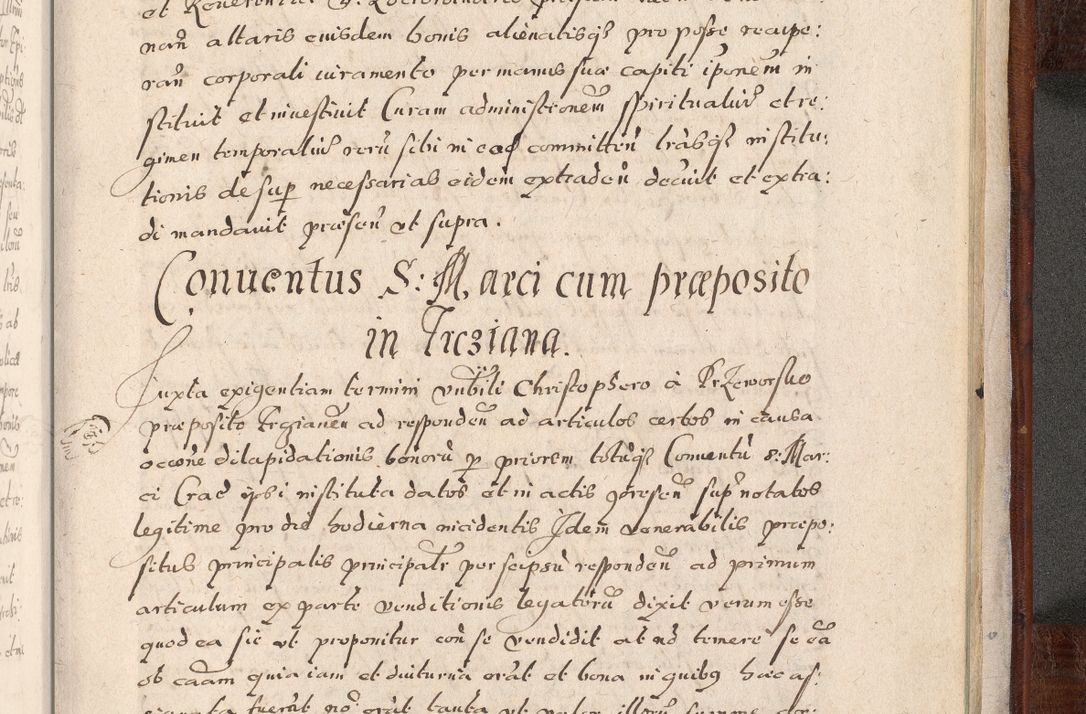 nan̄ altaris eiusdem bonis alienatisq₃ pro posse recupe:
ran̄ corporali iuramento per manus suæ capiti iponem̄ in
stituit et investivit Curam administionem̄ spiritualiū et re:
gimen temporaliū rerū sibi in ea committen̄ l̄rasq₃ institu:
tionis desup̱ necessarias eidem extraden̄ decūit et extra:
di mandavit præsen̄ ut supra.
Conventus S: Marci cum præposito
in Trcziana.
Juxta exigentiam termini Vn̄bili Christophero à Przeworsko
præposito Trzianen̄ ad responden̄ ad articulos certos in causa
occōne dilapidationis bonorū p̱ priorem totūq₃ Conventū S: Mar:
ci Crac̄ ipsi instituta datos et in actis præsen̄ sup̄notatos
legitime pro die hodierna incidentis Idem venerabilis præpo:
situs principalis principalr̄ per seipsū responden̄ ad primum
articulum ex parte venditionis legatorū dixit verum esse
quod ea sic ut proponitur con̄ se vendidit at nō temere se ea
ob caām quia iam et diuturnā erāt et bona in quibus hæc as: